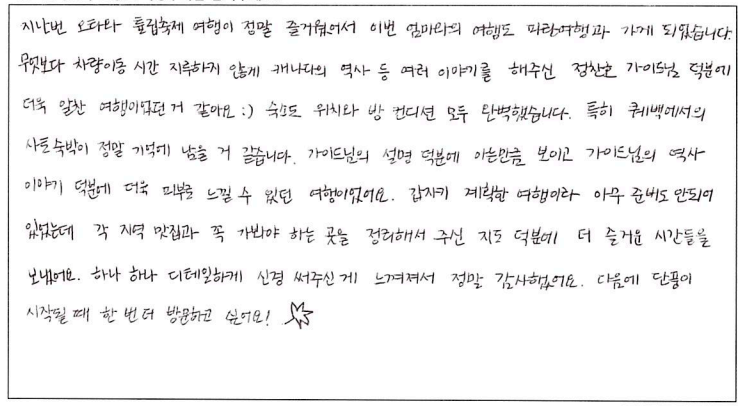 지난번 오타와 튤립축제 여행이 정말 즐거웠어서 이번 엄마와의 여행도 파란여행과 가게 되었습니다.
무엇보다 차량이동 시간 지루하지 않게 캐나다의 역사 등 여러 이야기를 해주신 정찬호 가이드님 덕분에
더욱 알찬 여행이었던 거 같아요 :) 숙소도 위치와 방 컨디션 모두 완벽했습니다. 특히 퀘백에서의
샤토숙박이 정말 기억에 남을 거 같습니다. 가이드님의 설명 덕분에 아는만큼 보이고 가이드님의 역사
이야기 덕분에 더욱 피부로 느낄 수 있던 여행이었어요. 갑자기 계획한 여행이라 아무 준비도 안되어
있었는데 각 지역 맛집과 꼭 가봐야 하는 곳을 정리해서 주신 지도 덕분에 더 즐거운 시간들을
보냈어요. 하나 하나 디테일하게 신경 써주신 게 느껴져서 정말 감사했어요. 다음에 단풍이
시작될 때 한 번 더 방문하고 싶어요!